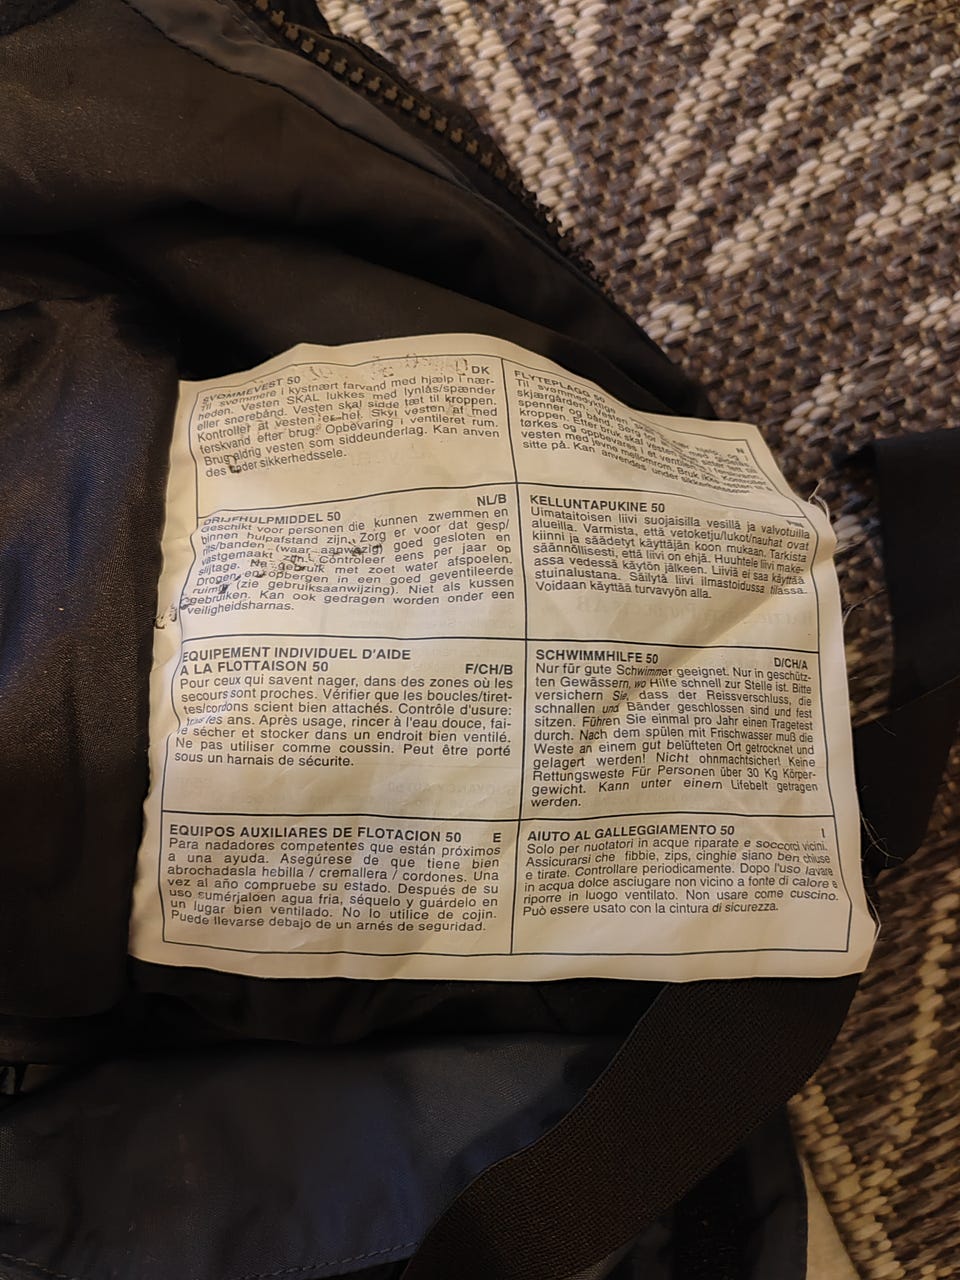 SVØMMEVEST 50 DK
Til svømmere i kystnært farvand med hjælp i nær-
heden. Vesten SKAL lukkes med lynlås/spænder
eller snørebånd. Vesten skal sidde tæt til kroppen.
Kontroller at vesten er hel. Skyl vesten af med
ferskvand efter brug. Opbevaring i ventileret rum.
Brug aldrig vesten som siddeunderlag. Kan anven
des under sikkerhedssele.
FLYTEPLAGG 50 N
Til svømmedyktige
skjærgården. Vesten
spenner og bånd. Sørg for
kroppen. Etter bruk skal vesten
tørkes og oppbevares i et ventilert
vesten med jevne mellomrom. Bruk ikke vesten til
sitte på. Kan anvendes under sikkerhetsseler.
DRIJFHULPMIDDEL 50 NL/B
Geschikt voor personen die kunnen zwemmen en
binnen hulpafstand zijn. Zorg er voor dat gesp/
rits/banden (waar aanwezig) goed gesloten en
vastgemaakt zijn. Controleer eens per jaar op
slijtage. Na gebruik met zoet water afspoelen.
Drogen en opbergen in een goed geventileerde
ruimte (zie gebruiksaanwijzing). Niet als kussen
gebruiken. Kan ook gedragen worden onder een
veiligheidsharnas.
KELLUNTAPUKINE 50 FIN
Uimataitoisen liivi suojaisilla vesillä ja valvotuilla
alueilla. Varmista, että vetoketju/lukot/nauhat ovat
kiinni ja säädetyt käyttäjän koon mukaan. Tarkista
säännöllisesti, että liivi on ehjä. Huuhtele liivi make-
assa vedessä käytön jälkeen. Liiviä ei saa käyttää
stuinalustana. Säilytä liivi ilmastoidussa tilassa.
Voidaan käyttää turvavyön alla.
EQUIPEMENT INDIVIDUEL D'AIDE
A LA FLOTTAISON 50 F/CH/B
Pour ceux qui savent nager, dans des zones où les
secours sont proches. Vérifier que les boucles/tiret-
tes/cordons scient bien attachés. Contrôle d'usure:
tous les ans. Après usage, rincer à l'eau douce, fai-
re sécher et stocker dans un endroit bien ventilé.
Ne pas utiliser comme coussin. Peut être porté
sous un harnais de sécurite.
SCHWIMMHILFE 50 D/CH/A
Nur für gute Schwimmer geeignet. Nur in geschütz-
ten Gewässern, wo Hilfe schnell zur Stelle ist. Bitte
versichern Sie, dass der Reissverschluss, die
schnallen und Bänder geschlossen sind und fest
sitzen. Führen Sie einmal pro Jahr einen Tragetest
durch. Nach dem spülen mit Frischwasser muß die
Weste an einem gut belüfteten Ort getrocknet und
gelagert werden! Nicht ohnmachtsicher! Keine
Rettungsweste Für Personen über 30 Kg Körper-
gewicht. Kann unter einem Lifebelt getragen
werden.
EQUIPOS AUXILIARES DE FLOTACION 50 E
Para nadadores competentes que están próximos
a una ayuda. Asegúrese de que tiene bien
abrochadasla hebilla / cremallera / cordones. Una
vez al año compruebe su estado. Después de su
uso sumérjaloen agua fria, séquelo y guárdelo en
un lugar bien ventilado. No lo utilice de cojin.
Puede llevarse debajo de un arnés de seguridad.
AIUTO AL GALLEGGIAMENTO 50 I
Solo per nuotatori in acque riparate e soccorci vicini.
Assicurarsi che fibbie, zips, cinghie siano ben chiuse
e tirate. Controllare periodicamente. Dopo l'uso lavare
in acqua dolce asciugare non vicino a fonte di calore e
riporre in luogo ventilato. Non usare come cuscino.
Può essere usato con la cintura di sicurezza.